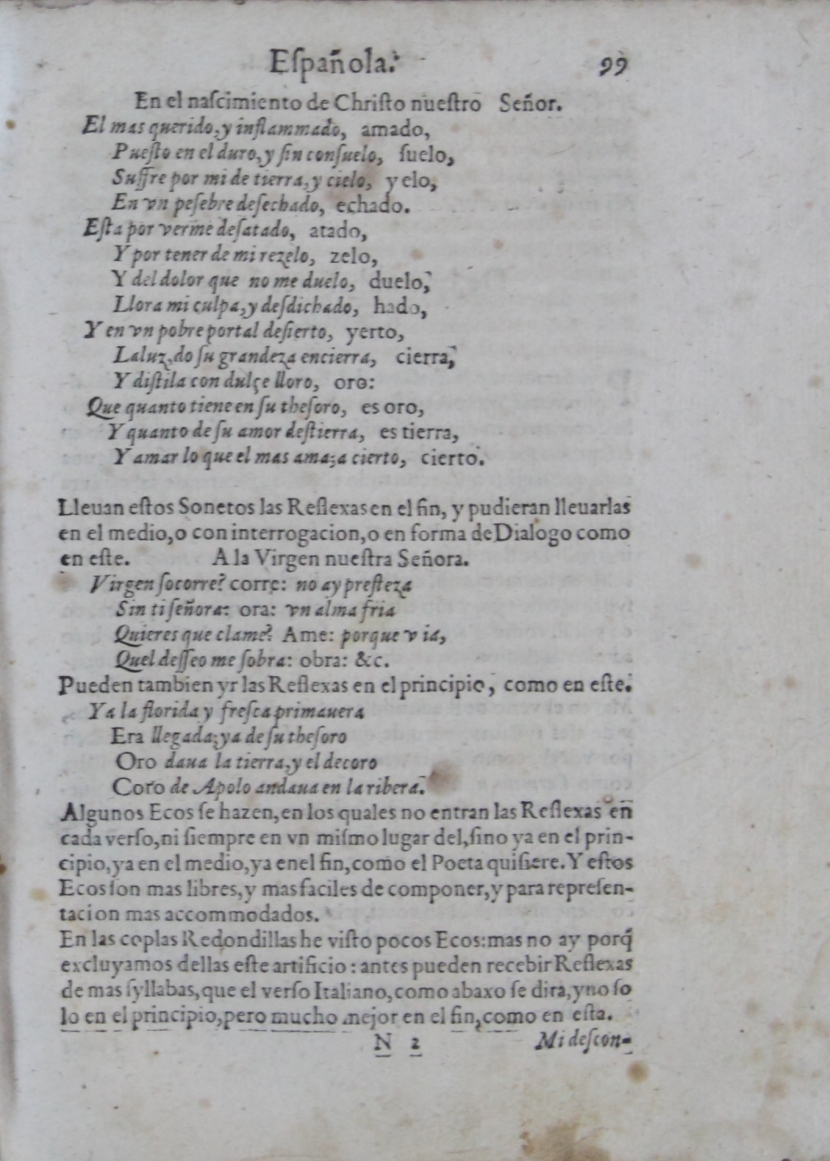 Eſpañola. 99
En el naſcimiento de Chriſto nueſtro Señor.
El mas querido, y inflammado, amado,
Pueſto en el duro, y ſin conſuelo, ſuelo,
Suffre por mi de tierra, y cielo, yelo,
En vn peſebre deſechado, echado.
Eſta por verme deſatado, atado,
Y por tener de mi rezelo, zelo,
Y del dolor que no me duelo, duelo,
Llora mi culpa, y deſdichado, hado,
Y en vn pobre portal deſierto, yerto,
La luz, do ſu grandeza encierra, cierra,
Y diſtila con dulçe lloro, oro:
Que quanto tiene en ſu theſoro, es oro,
Y quanto de ſu amor deſtierra, es tierra,
Y amar lo que el mas ama; a cierto, cierto.
Lleuan eſtos Sonetos las Reflexas en el fin, y pudieran lleuarlas
en el medio, o con interrogacion, o en forma de Dialogo como
en eſte. A la Virgen nueſtra Señora.
Virgen ſocorre? corre: no ay preſteza
Sin ti ſeñora: ora: vn alma fria
Quieres que clame? Ame: porque via,
Quel deſſeo me ſobra: obra: &c.
Pueden tambien yr las Reflexas en el principio, como en eſte.
Ya la florida y freſca primauera
Era llegada; ya de ſu theſoro
Oro daua la tierra, y el decoro
Coro de Apolo andaua en la ribera.
Algunos Ecos ſe hazen, en los quales no entran las Reflexas en
cada verſo, ni ſiempre en vn miſmo lugar del, ſino ya en el prin-
cipio, ya en el medio, ya enel fin, como el Poeta quiſiere. Y eſtos
Ecos ſon mas libres, y mas faciles de componer, y para repreſen-
tacion mas accommodados.
En las coplas Redondillas he viſto pocos Ecos: mas no ay porq̃
excluyamos dellas eſte artificio: antes pueden recebir Reflexas
de mas ſyllabas, que el verſo Italiano, como abaxo ſe dira, y no ſo
lo en el principio, pero mucho mejor en el fin, como en eſta.
N 2 Mi deſcon-